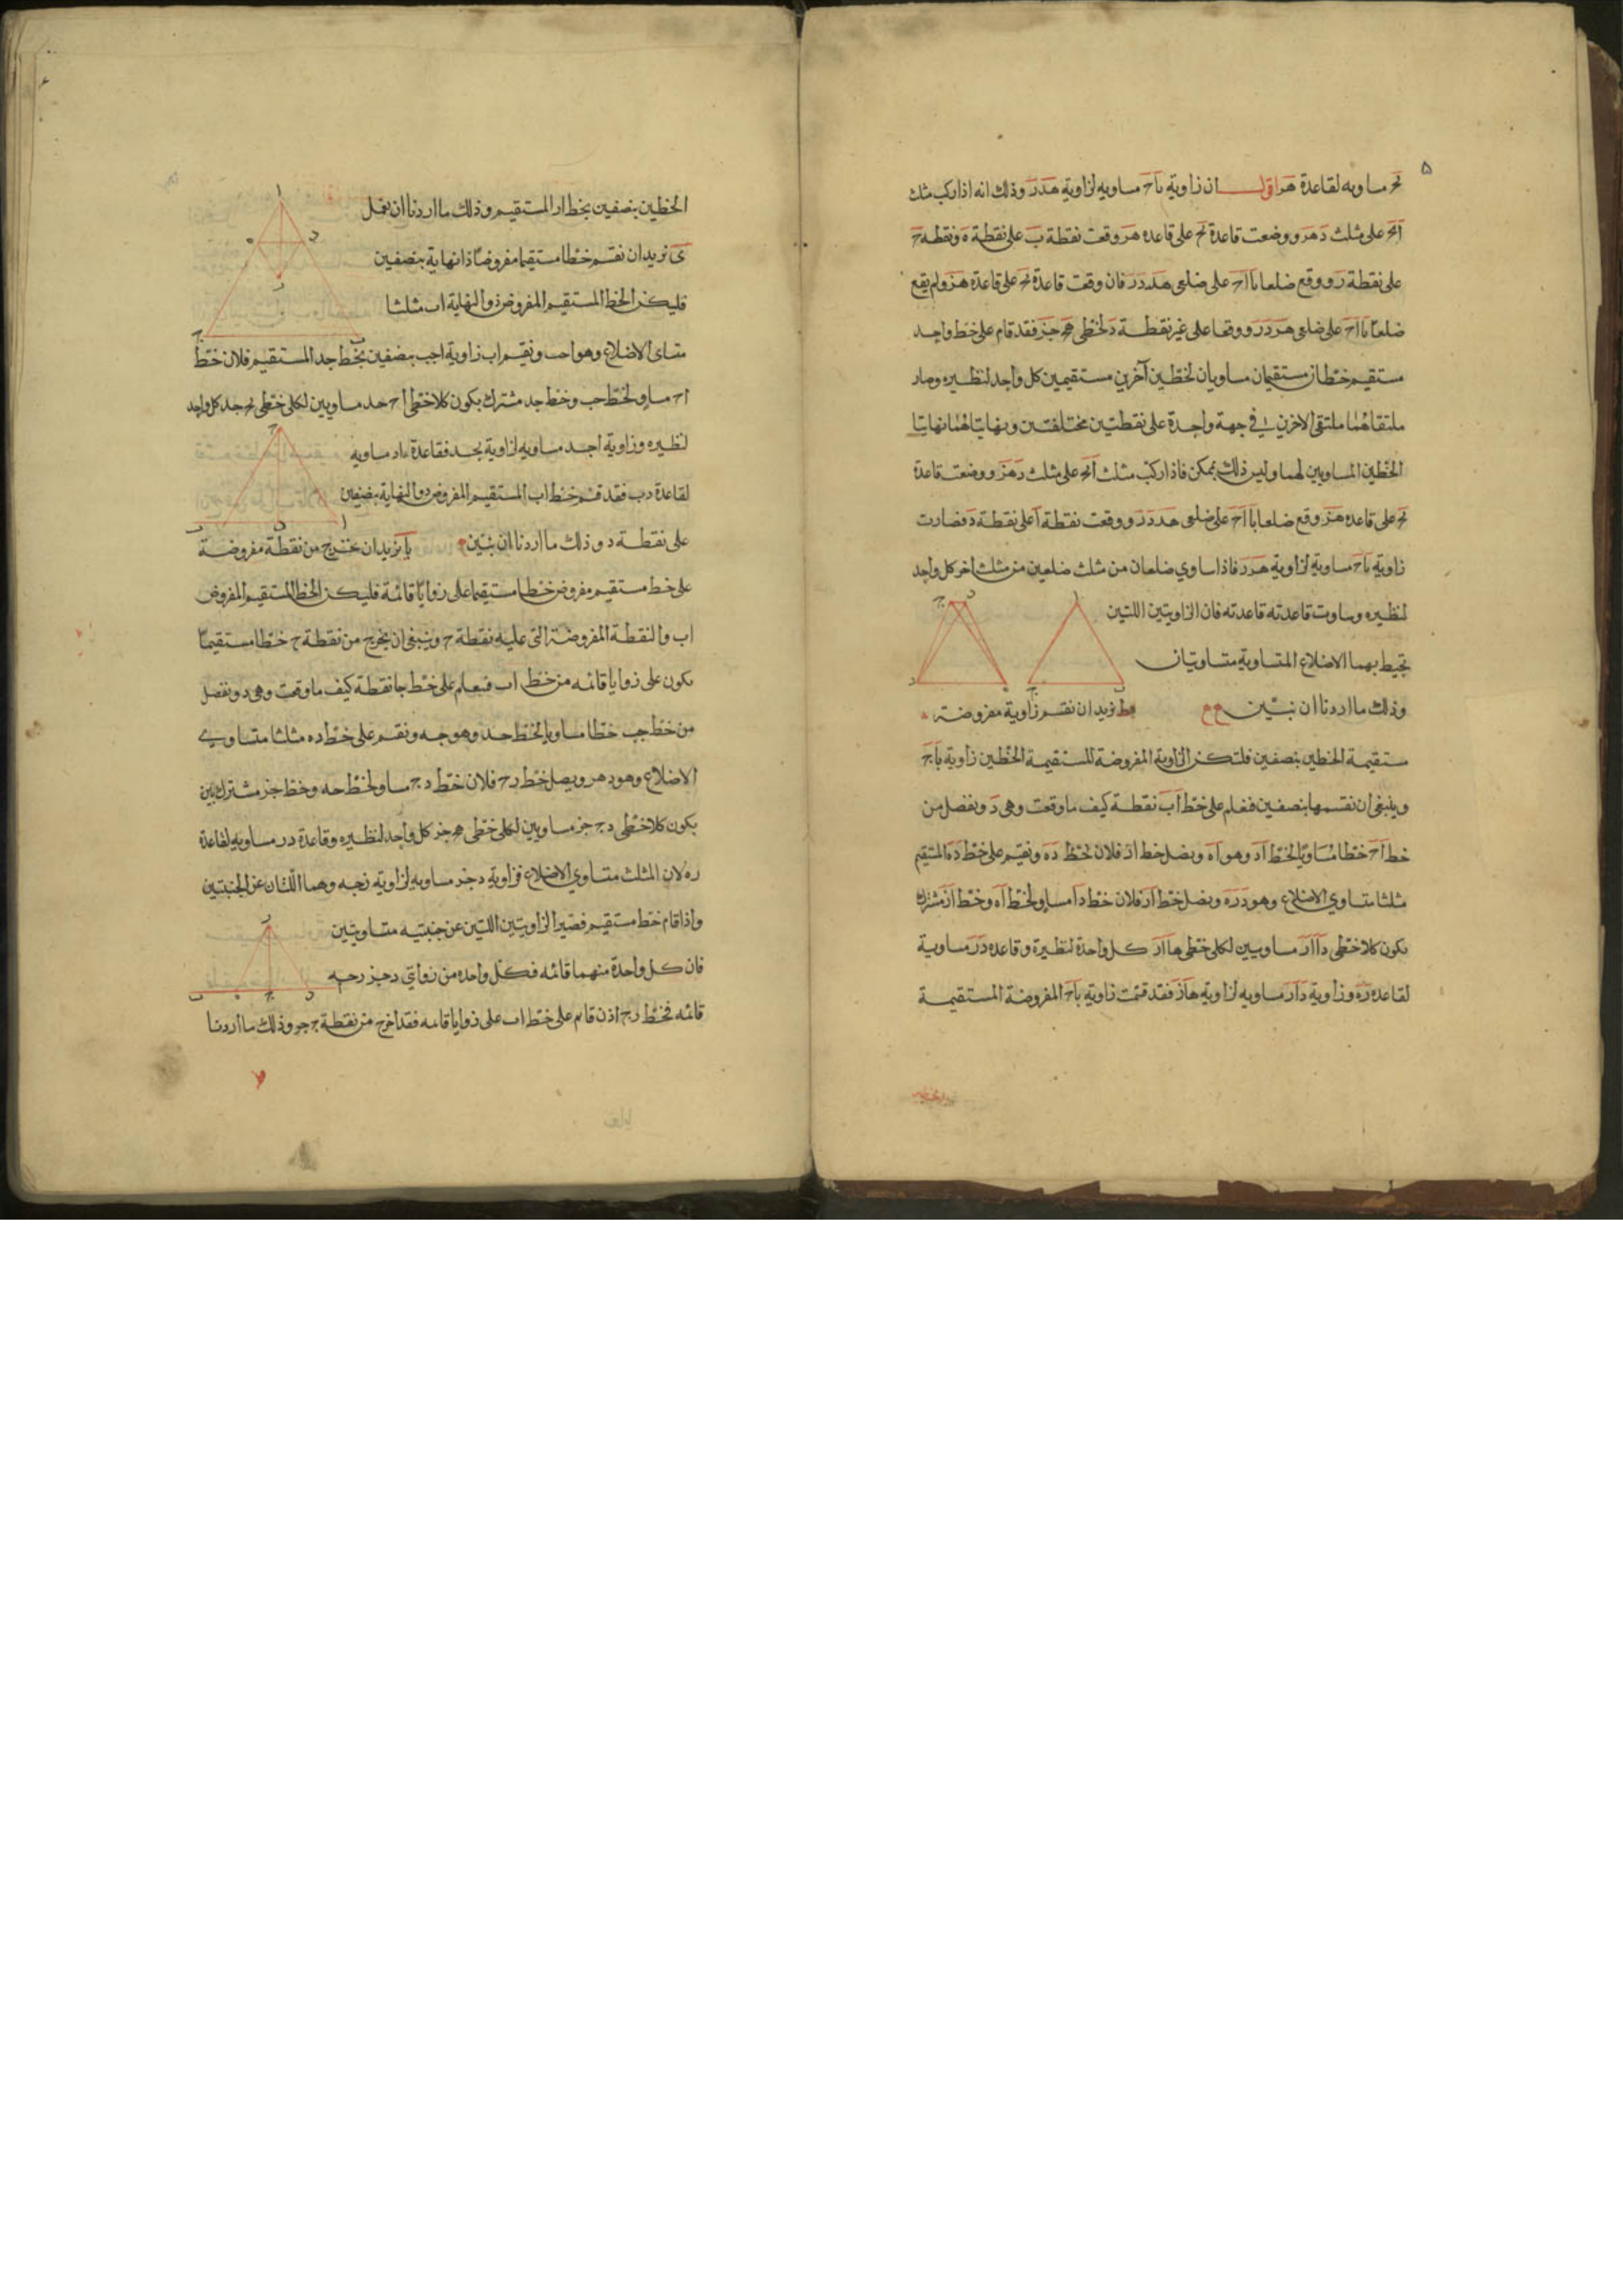 ٥
بَحَ مساويه لقاعدة هَرَ اقول ان زاوية بَاَحَ مساويه لزاوية هَدَرَ وذلك انه اذا ركب مثلث
اَبَحَ على مثلث دَهَرَ ووضعت قاعدة بَحَ على قاعده هَرَ وقعت نقطة بَ على نقطة هَ ونقطة حَ
على نقطة رَ ووقع ضلعا بَاَ اَحَ على ضلعى هَدَ دَرَ فان وقعت قاعدة بَحَ على قاعدة هَزَ ولم يقع
ضلعا بَاَ اَحَ على ضلعى هَدَ دَرَ ووقعا على غير نقطة دَ لخطى هَجَ جَزَ فقد قام على خط واحد
مستقيم خطان مستقيمان مساويان لخطين آخرين مستقيمين كل واحد لنظيره وصار
ملتقاهما ملتقى الاخرين فى جهة واحدة على نقطتين مختلفتين ونهايتاهما نهايتا
الخطين المساويين لهما وليس ذلك بممكن فاذا ركب مثلث اَبَحَ على مثلث دَهَزَ ووضعت قاعدة
بَحَ على قاعده هَزَ وقع ضلعا بَاَ اَحَ على ضلعى هَدَ دَرَ ووقعت نقطة اَ على نقطة دَ فصارت
زاوية بَاَحَ مساوية لزاوية هَدَرَ فاذا ساوي ضلعان من مثلث ضلعين من مثلث اخر كل واحد
لنظيره وساوت قاعدته قاعدته فان الزاويتين اللتين
تحيط بهما الاضلاع المتساوية متساويتان
وذلك ما اردنا ان نبين ط نريد ان نقسم زاوية مفروضة
مستقيمة الخطين بنصفين فلتكن الزاوية المفروضة المستقيمة الخطين زاوية بَاَجَ
وينبغى ان نقسمها بنصفين فنعلم على خط اَبَ نقطة كيف ما وقعت وهى دَ ونفصل من
خط اَحَ خطا مساويا لخط اَدَ وهو اَهَ ونصل خط دَهَ ونقيم على خط دَهَ المستقيم
مثلثا متساوي الاضلاع وهو دَرَهَ ونصل خط اَزَ فلان خط دَاَ مساو لخط اَهَ وخط اَزَ مشترك
يكون كلا خطى دَاَ اَرَ مساويين لكلى خطى هَاَ اَرَ كل واحدة لنظيرة وقاعده دَرَ مساوية
لقاعده رَهَ وزاوية دَاَرَ مساويه لزاوية هَاَزَ فقد قسمت زاوية بَاَحَ المفروضة المستقيمة
الخطين بنصفين بخط ار المستقيم وذلك ما اردنا ان نعمل
ىَ نريد ان نقسم خطا مستقيما مفروضا ذا نهاية بنصفين
فليكن الخط المستقيم المفروض ذو النهاية اب مثلثا
متساى الاضلاع وهو احب ونقسم زاوية احب بنصفين بخط جد المستقيم فلان خط
اح مساو لخط حب وخط جد مشترك يكون كلا خطى اح حد مساويين لكلى خطى بح جد كل واحد
لنظيره وزاوية اجد مساويه لزاوية بحد فقاعدة اد مساويه
لقاعدة دب فقد قسم خط اب المستقيم المفروض ذو النهاية بنصفين
على نقطة د وذلك ما اردنا ان نبين ياَ نريد ان نخرج من نقطة مفروضة
على خط مستقيم مفروض خطا مستقيما على زوايا قائمة فليكن الخط المستقيم المفروض
اب والنقطة المفروضة التى عليه نقطة ح وينبغى ان يخرج من نقطة ح خطا مستقيما
يكون على زوايا قائمه من خط اب فنعلم على خط جا نقطة كيف ما وقعت وهى د ونفصل
من خط جب خطا مساويا لخط حد وهو جه ونقسم على خط ده مثلثا متساوي
الاضلاع وهو دهر ويصل خط رح فلان خط دج مساو لخط حه وخط جز مشترك بين
يكون كلا خطى دج جز مساويين لكلى خطى هج جز كل واحد لنظيره وقاعدة در مساويه لقاعدة
ره لان المثلث متساوي الاضلاع فزاوية دجز مساويه لزاوية زجه وهما اللتان عن الجنبتين
واذا قام خط مستقيم فصير الزاويتين اللتين عن جنبتيه متساويتين
فان كل واحدة منهما قائمه فكل واحده من زوايتي دجز رجه
قائمه فخط رج اذن قائم على خط اب على زوايا قائمه فقد اخرج من نقطة ج جر وذلك ما اردنا